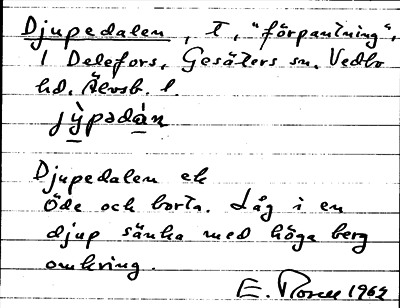 Djupedalen, t, "förpantning",
1 Delefors, Gesäters sn. Vedbo
hd. Älvsb. l.
jỳpədàn
Djupedalen ek
öde och borta. Låg i en
djup sänka med höga berg
omkring.
E. 1962